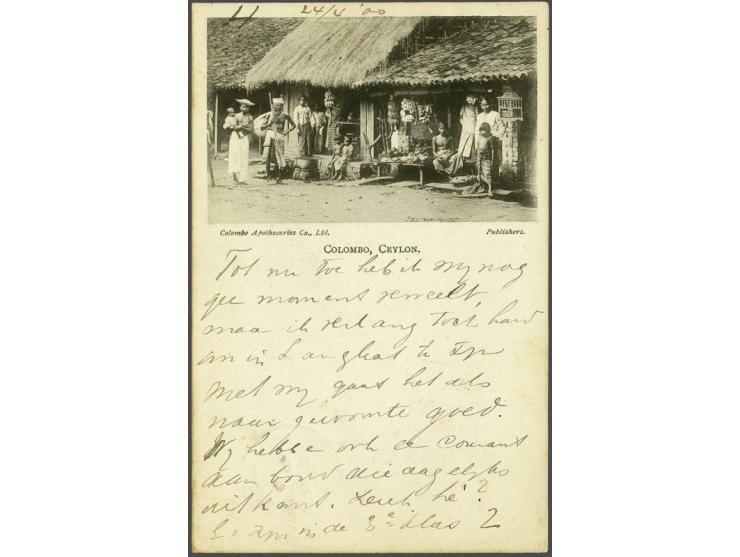 11 24/4 '00
Colombo Apothecaries Co., Ltd. Publishers.
COLOMBO, CEYLON.
Tot nu toe heb ik my nog
gee moment verveelt,
maa ik verlang toch hard
om in Langkat te zyn
Met my gaat het als
naar gewoonte goed.
Wy hebbe ook ee Courant
aan bord die dagelyks
uitkomt. Leuk hè?
in de 3e klas?